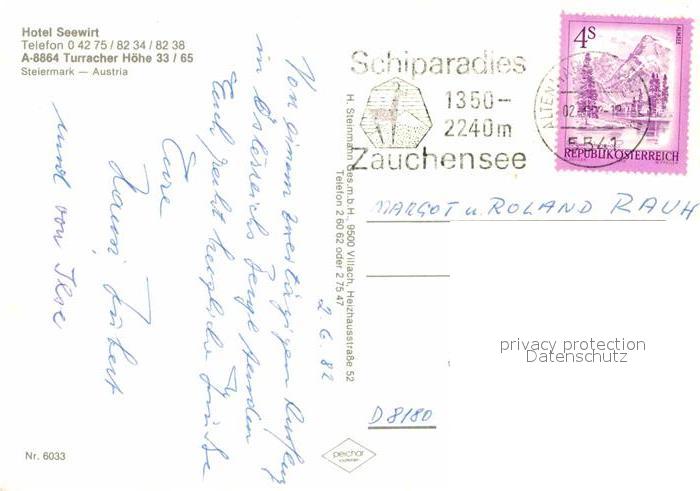 Hotel Seewirt
Telefon 0 42 75 / 82 34 / 82 38
A-8864 Turracher Höhe 33 / 65
Steiermark — Austria
Schiparadies
1350-
2240m
Zauchensee
4S
ALMSEE
REPUBLIK ÖSTERREICH
5541
H. Steinmann Ges.m.b.H., 9500 Villach, Heizhausstraße 52
Telefon 2 60 62 oder 2 75 47
2.6.82
Von einem zweitägigen Ausflug
in Österreichs Berge senden
Euch recht herzliche Grüße
Eure
Hubert
und von Ilse
MARGOT u. ROLAND RAUH
D 8180
privacy protection
Datenschutz
Nr. 6033